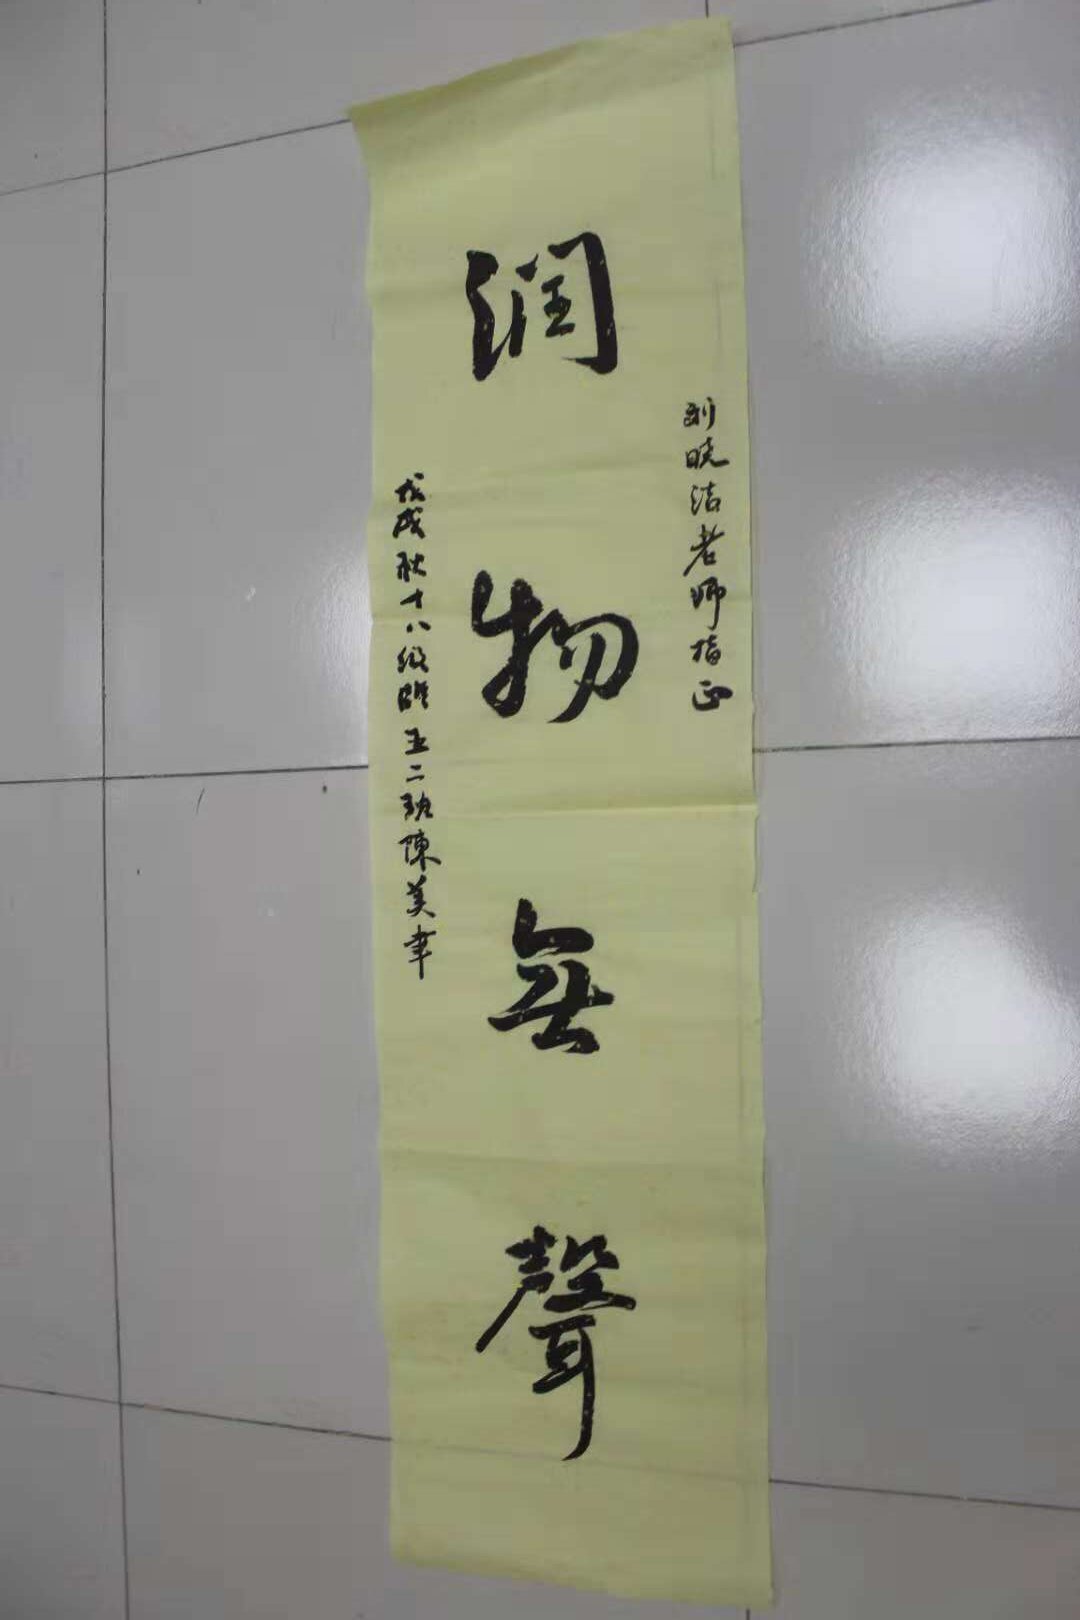 刘晓洁老师指正
润物无聲
戊戌秋十八级临五二班陳美聿